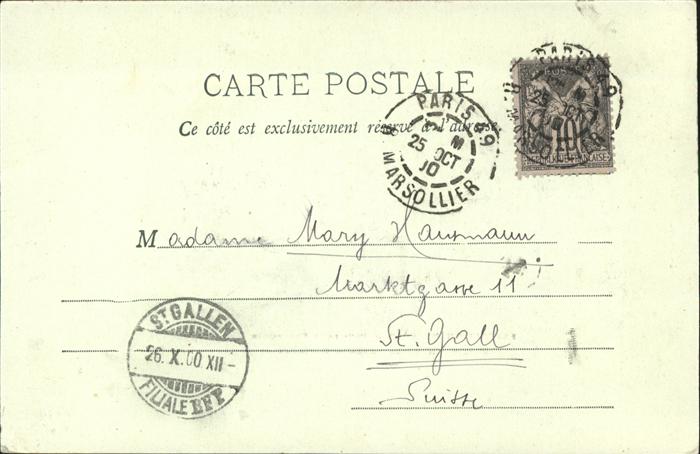 CARTE POSTALE
Ce côté est exclusivement réservé à l'adresse
PARIS 49
M
25 OCT
00
R. MARSOLLIER
PARIS 49
25
10
Madame Mary Hausmann
Marktgasse 11
St. Gall
Suisse
ST GALLEN
26. X. 00 XII –
FILIALE BFP